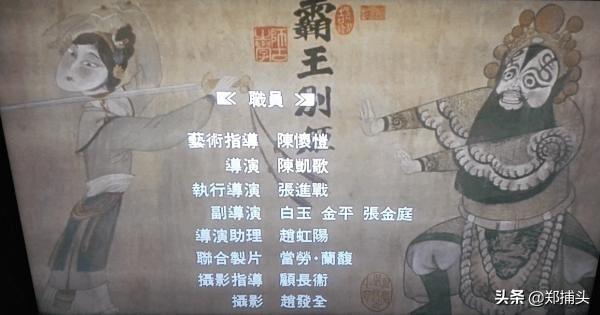 霸王別姬
職員
藝術指導 陳懷愷
導演 陳凱歌
執行導演 張進戰
副導演 白玉 金平 張金庭
導演助理 趙虹陽
聯合製片 當勞·蘭馥
攝影指導 顧長衛
攝影 趙發全
头条 @郑捕头